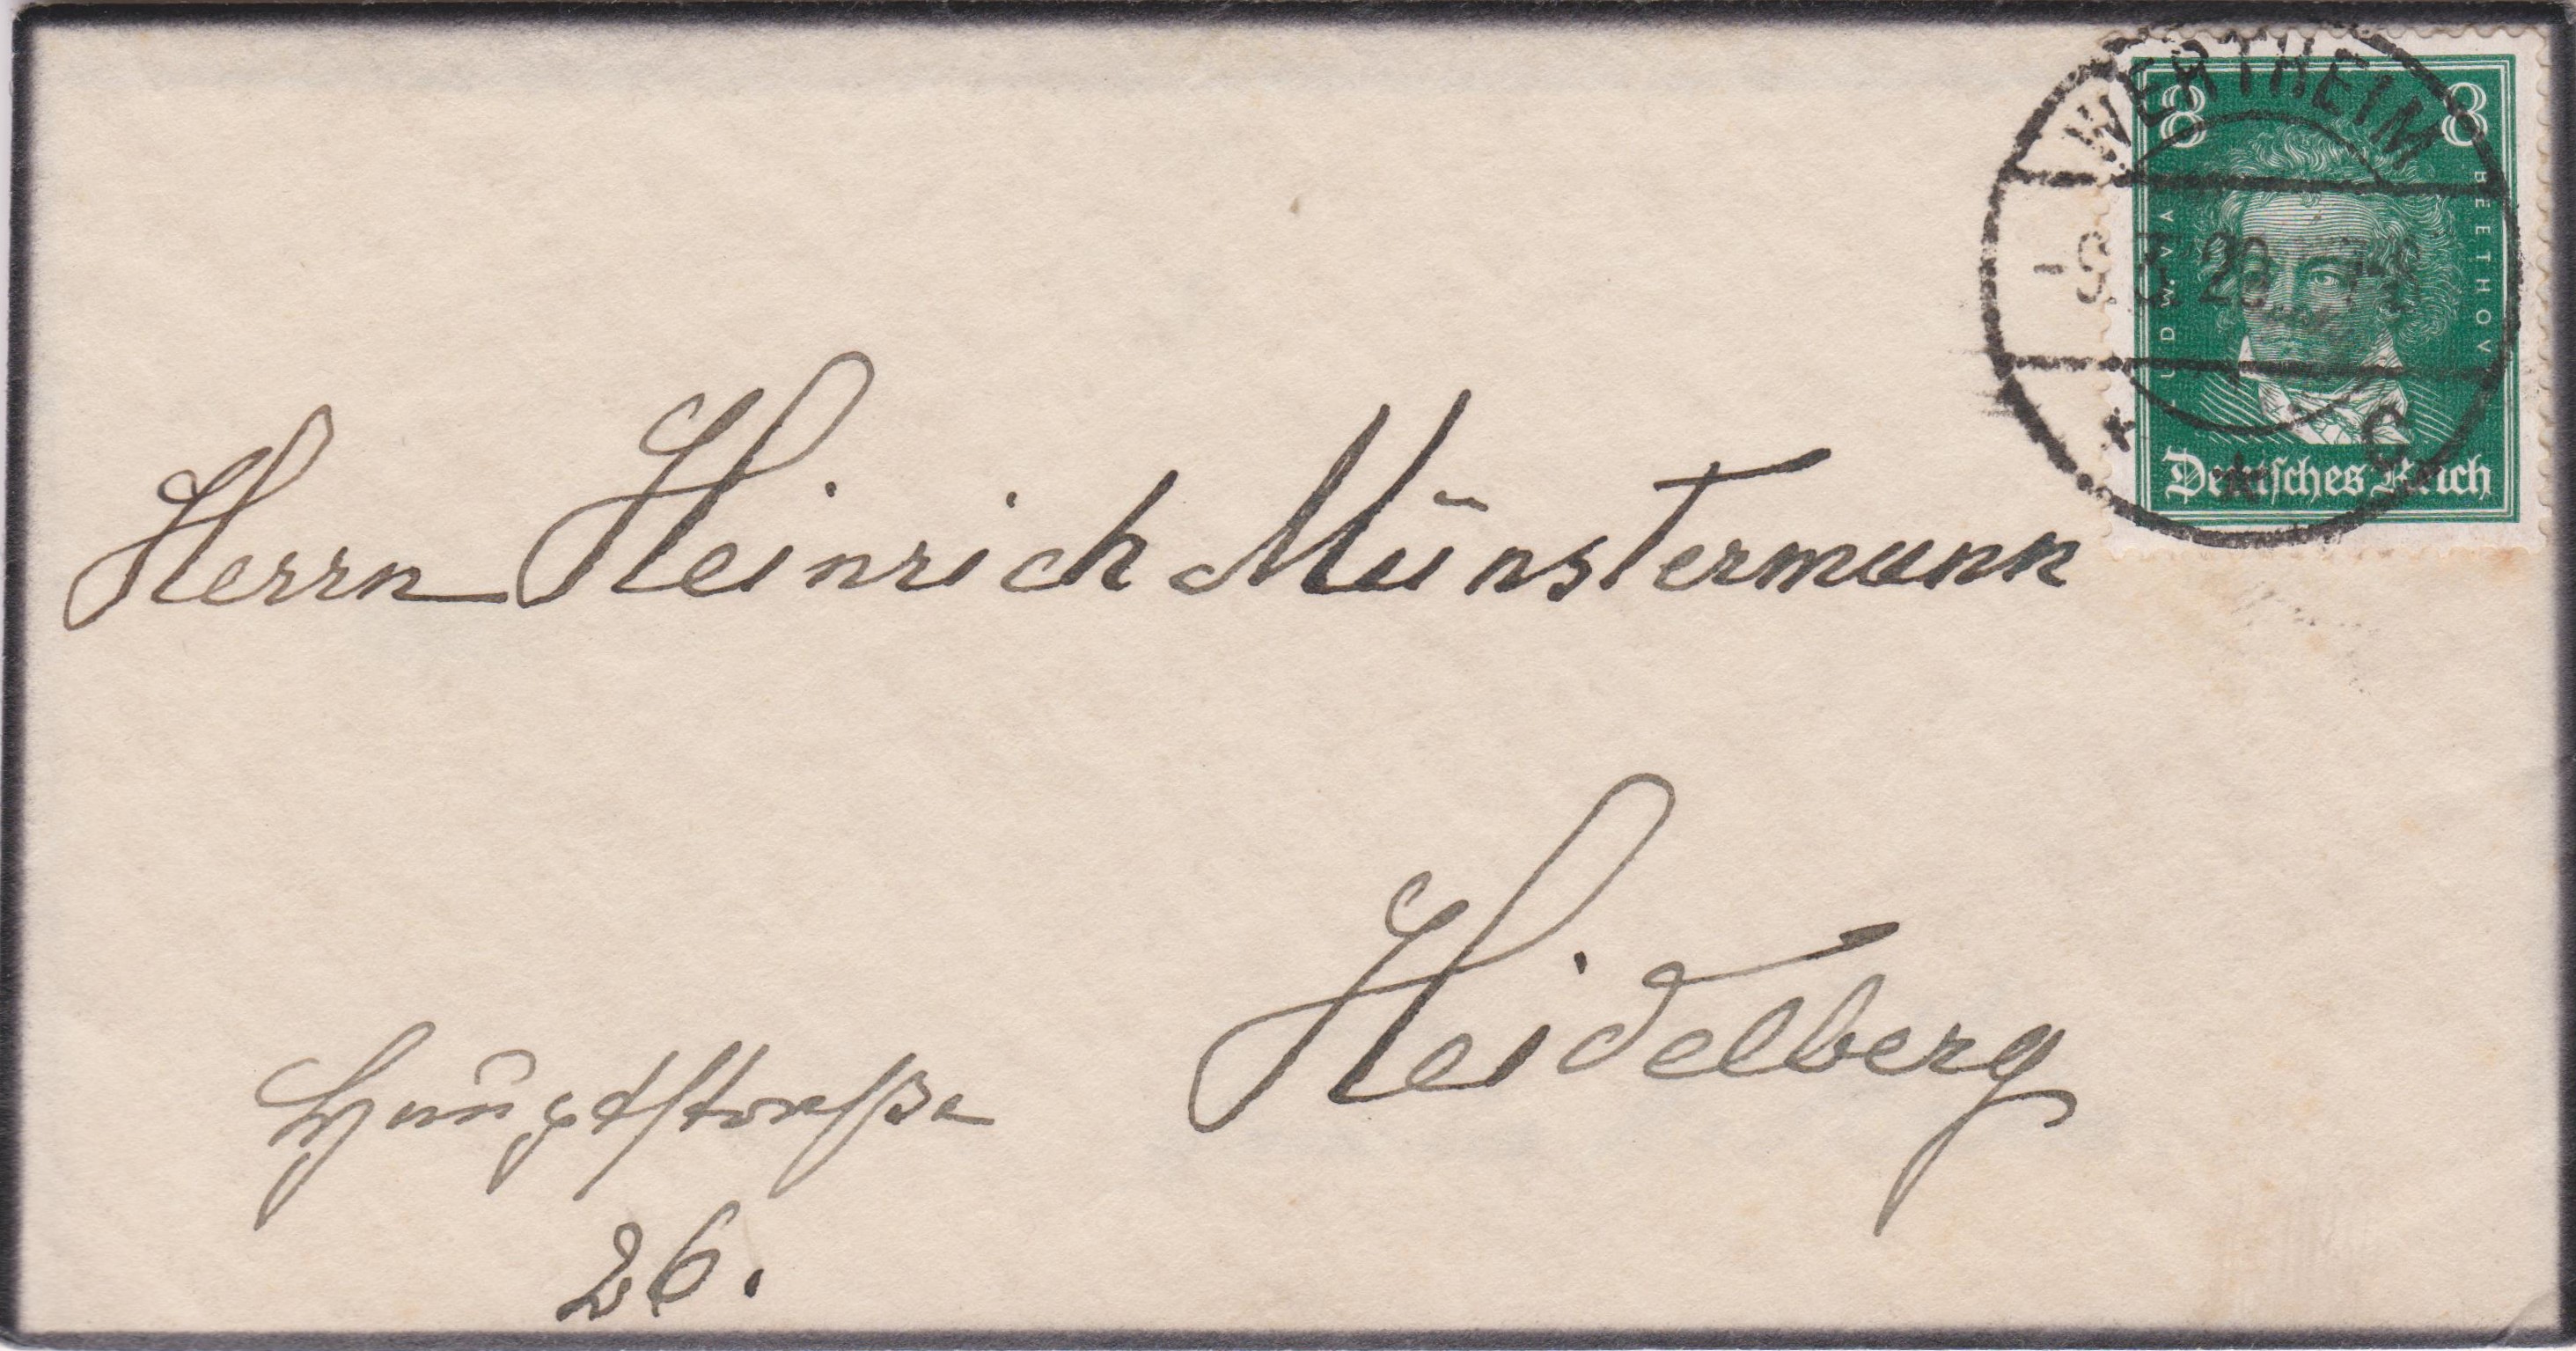 WERTHEIM
8 8
LUDW. VAN BEETHOVEN
Deutsches Reich
Herrn Heinrich Münstermann
Heidelberg
Hauptstraße
26.